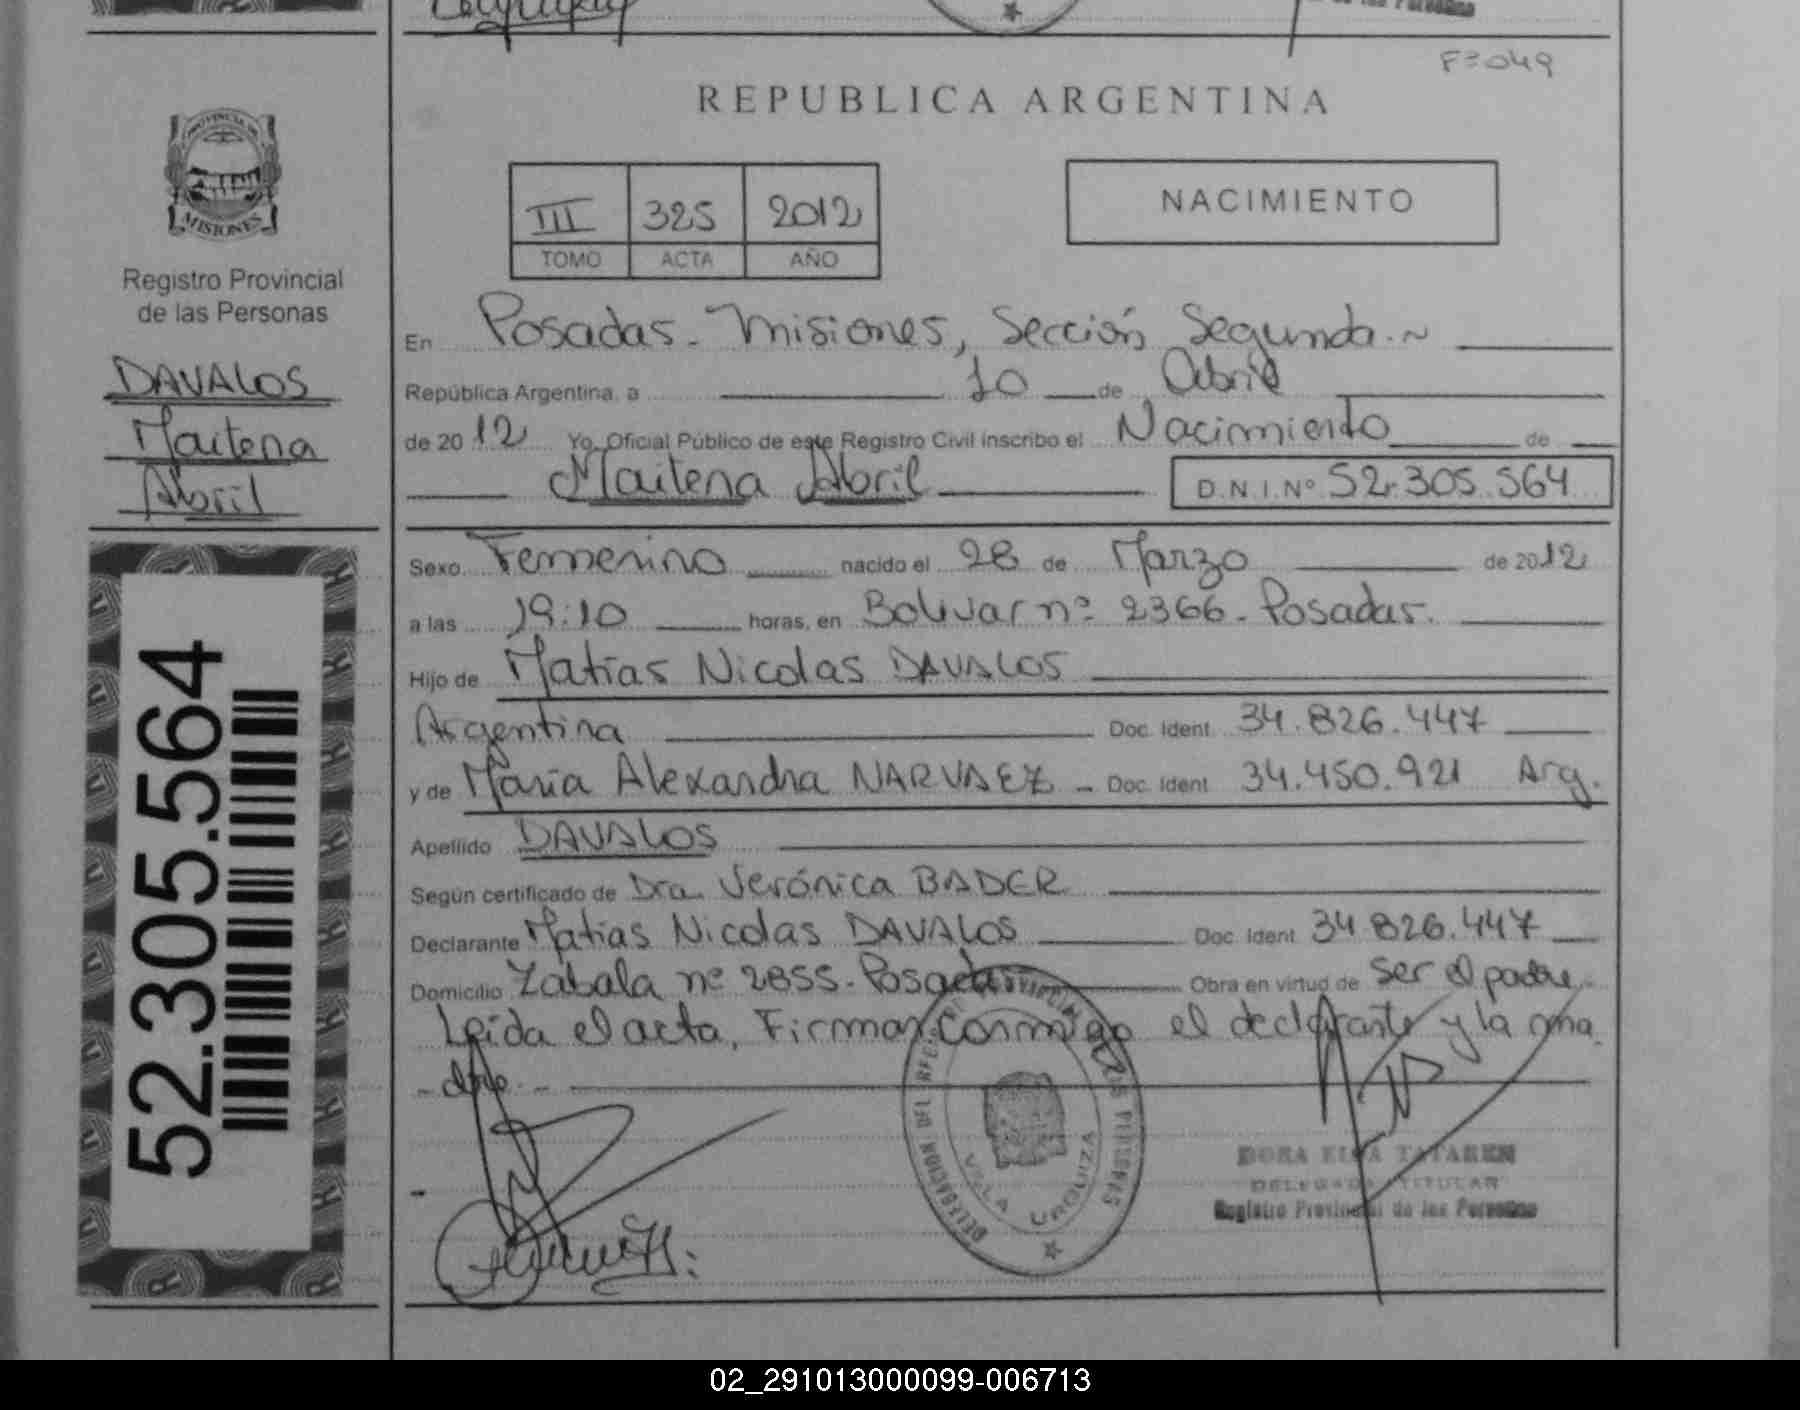 Fº 049
REPUBLICA ARGENTINA
PROVINCIA DE
MISIONES
Registro Provincial
de las Personas
DAVALOS
Maitena
Abril
52.305.564
III 325 2012
TOMO ACTA AÑO
NACIMIENTO
En Posadas - Misiones, Sección Segunda.~
República Argentina, a 10 de Abril
de 2012 Yo, Oficial Público de este Registro Civil inscribo el Nacimiento de
Maitena Abril D.N.I.Nº 52.305.564
Sexo Femenino nacido el 28 de Marzo de 2012
a las 19:10 horas, en Bolivar nº 2366 - Posadas.
Hijo de Matías Nicolas DAVALOS
Argentina Doc. Ident. 34.826.447
y de María Alexandra NARVAEZ - Doc. Ident. 34.450.921 Arg.
Apellido DAVALOS
Según certificado de Dra. Verónica BADER
Declarante Matias Nicolas DAVALOS Doc. Ident. 34.826.447
Domicilio Zabala nº 2855 - Posadas Obra en virtud de ser el padre.
Leida el acta, Firman conmigo el declarante y la ma
dre.
DELEGACION DEL REGISTRO PROVINCIAL DE LAS PERSONAS
VILLA URQUIZA
DORA ELSA TATAREN
DELEGADA TITULAR
Registro Provincial de las Personas
02_291013000099-006713